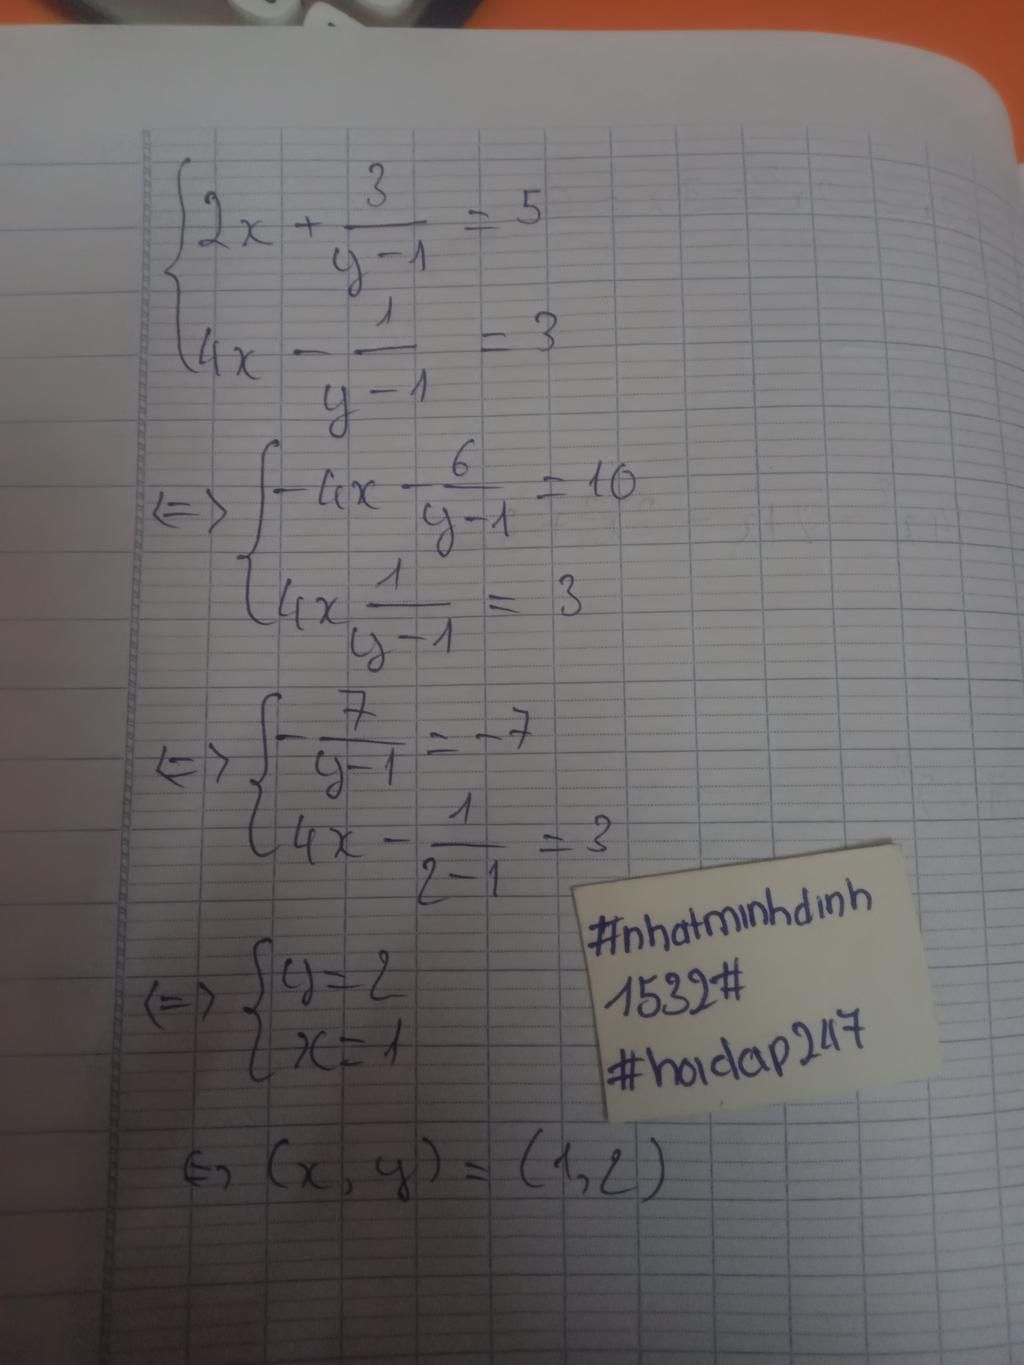 { 2x + 3/(y-1) = 5
4x - 1/(y-1) = 3
<=> { -4x - 6/(y-1) = 10
4x 1/(y-1) = 3
<=> { -7/(y-1) = -7
4x - 1/(2-1) = 3
<=> { y = 2
x = 1
<=> (x, y) = (1, 2)
#nhatminhdinh
1532#
#hoidap247